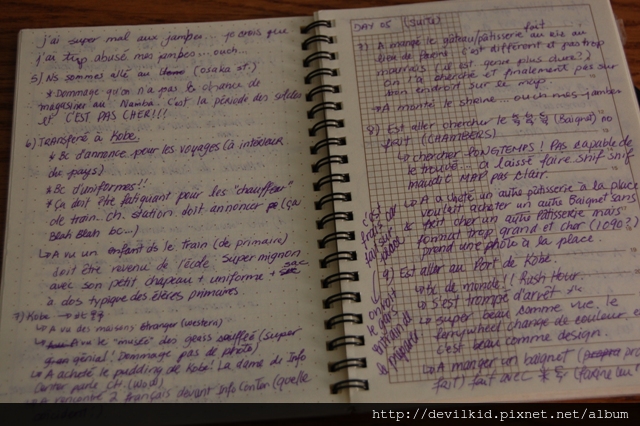 j'ai super mal aux jambes... je crois que
j'ai trop abusé mes jambes... ouch...
5) Ns sommes allé au (Osaka st.)
* Dommage qu'on n'a pas la chance de
magasiner au Namba. C'est la période des soldes
et C'EST PAS CHER!!!
6) TRANSFERÉ à Kobe.
* Bc d'annonce pour les voyages (à intérieur
du pays)
* Bc d'uniformes!!
* Ça doit être fatiguant pour les "chauffeur"
de train. ch. station doit annoncer (ça
Blah Blah bc...)
↳ A vu un enfant ds le train (de primaire)
doit être revenu de l'école. super mignon
avec son petit chapeau + uniforme + sac
à dos typique des élèves primaires
7) Kobe →
↳ A vu des maisons étranger (western)
le "musée" des gens (super
génial! Dommage pas de photo)
↳ A acheté le pudding de Kobe! La dame de Info
Center parle CH. (wow)
↳ A rencontré 2 français devant Info Center (quelle
DAY 05 (SUITE)
7) A mangé le gâteau/pâtisserie fait au riz au
lieu de farine. C'est différent et pas trop
mauvais (il est genre plus dure?)
on l'a cherché et finalement pas sur
bon endroit sur le map.
→ A monté le shrine... ouch mes jambes
8) Est aller chercher le (Baignet) no
fait (CHAMBERS)
↳ chercher LONGTEMPS! Pas capable de
le trouvé... a laissé faire snif snif
maudit MAP pas clair.
↳ A visité un autre pâtisserie à la place
voulait acheter un autre Baignet sans
fait cher un autre Pâtisserie mais
format trop grand et cher (1090?)
prend une photo à la place.
9) Est aller au Port de Kobe.
↳ Bc de monde!! Rush Hour.
↳ S'est trompé d'arrêt
↳ super beau comme vue, le
ferrywheel change de couleur, e
c'est beau comme design.
↳ A manger un baignet
fait) fait avec (farine
c'est
frais car
fait sur
place
on voit
le gars
entrain de
le préparer
http://devilkid.pixnet.net/album